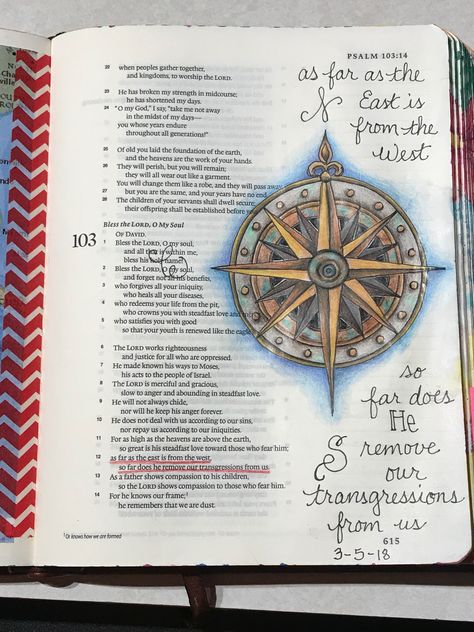 PSALM 103:14
22 when peoples gather together,
and kingdoms, to worship the LORD.
23 He has broken my strength in midcourse;
he has shortened my days.
24 "O my God," I say, "take me not away
in the midst of my days—
you whose years endure
throughout all generations!"
25 Of old you laid the foundation of the earth,
and the heavens are the work of your hands.
26 They will perish, but you will remain;
they will all wear out like a garment.
You will change them like a robe, and they will pass away
27 but you are the same, and your years have no end
28 The children of your servants shall dwell secure
their offspring shall be established before
Bless the LORD, O My Soul
103 OF DAVID.
1 Bless the LORD, O my soul,
and all that is within me,
bless his holy name!
2 Bless the LORD, O my soul,
and forget not all his benefits,
3 who forgives all your iniquity,
who heals all your diseases,
4 who redeems your life from the pit,
who crowns you with steadfast love and
5 who satisfies you with good
so that your youth is renewed like the
6 The LORD works righteousness
and justice for all who are oppressed.
7 He made known his ways to Moses,
his acts to the people of Israel.
8 The LORD is merciful and gracious,
slow to anger and abounding in steadfast love.
9 He will not always chide,
nor will he keep his anger forever.
10 He does not deal with us according to our sins,
nor repay us according to our iniquities.
11 For as high as the heavens are above the earth,
so great is his steadfast love toward those who fear him;
12 as far as the east is from the west,
so far does he remove our transgressions from us.
13 As a father shows compassion to his children,
so the LORD shows compassion to those who fear him.
14 For he knows our frame;1
he remembers that we are dust.
1 Or knows how we are formed
as far as the
N East is
from the
West
so
far does
He
S remove
our
transgressions
from us
615
3-5-18